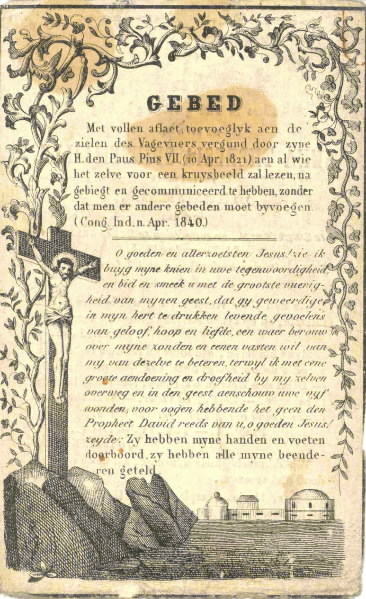 GEBED
Met vollen aflaet, toevoeglyk aen de
zielen des Vagevuers vergund door zyne
H. den Paus Pius VII. (10 Apr. 1821) aen al wie
het zelve voor een kruysbeeld zal lezen, na
gebiegt en gecommuniceerd te hebben, zonder
dat men er andere gebeden moet byvoegen.
(Cong. Ind. n. Apr. 1840.)
O goeden en allerzoetsten Jesus! zie ik
buyg myne knien in uwe tegenwoordigheid
en bid en smeek u met de grootste vuerig-
heid van mynen geest, dat gy geweerdige
in myn hert te drukken levende gevoelens
van geloof, hoop en liefde, een waer berouw
over myne zonden en eenen vasten wil van
my van dezelve te beteren, terwyl ik met eene
groote aendoening en droefheid by my zelven
overweg en in den geest aenschouw uwe vyf
wonden, voor oogen hebbende het geen den
Propheet David reeds van u, o goeden Jesus!
zeyde: Zy hebben myne handen en voeten
doorboord, zy hebben alle myne beende-
ren geteld